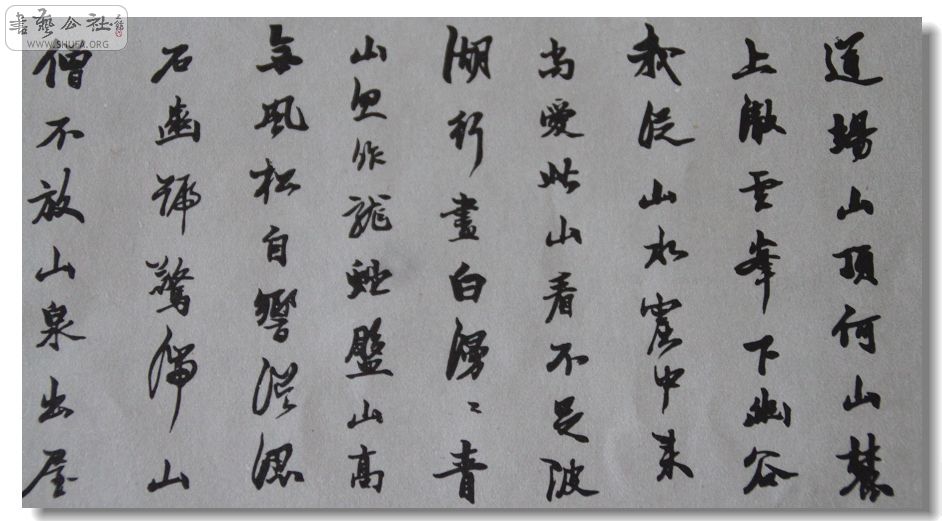 書藝公社
WWW.SHUFA.ORG
道場山頂何山麓
上徹云峯下幽谷
我從山水窟中来
尚愛此山看不足陂
湖行盡白漫〻青
山忽作龍蛇盤山高
無風松自響誤認
石齒號驚湍山
僧不放山泉出屋